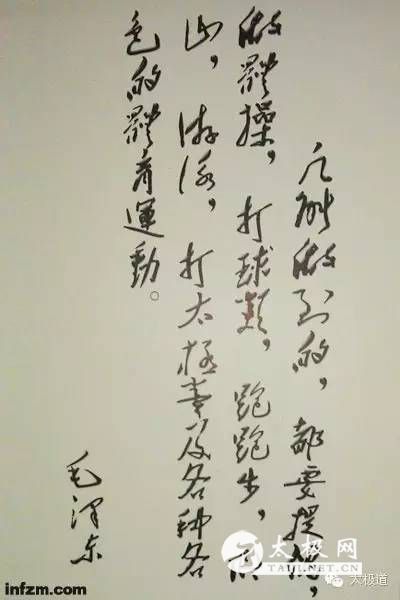 凡能做到的，都要提倡，
做體操，打球類，跑跑步，爬
山，游泳，打太極拳及各种各
色的體育運動。
毛澤东
太极网
TAIJI.NET.CN
infzm.com
太极道